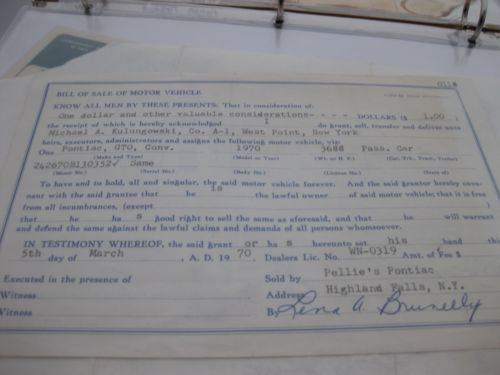 011a
BILL OF SALE OF MOTOR VEHICLE
KNOW ALL MEN BY THESE PRESENTS: That in consideration of:
One dollar and other valuable considerations- - - - DOLLARS ($ 1.00 )
the receipt of which is hereby acknowledged I do grant, sell, transfer and deliver unto
Michael A. Kulungowski, Co. A-1, West Point, New York
heirs, executors, administrators and assigns the following motor vehicle, viz:
One Pontiac, GTO, Conv. 1970 3688 Pass. Car
(Make and Type) (Model or Year) (Wt. or H. P.) (Car, Trk., Tract., Trailer)
242670B130352✓ Same
(Motor No.) (Serial No.) (Body No.) (License No.) (State of)
To have to hold, all and singular, the said motor vehicle forever. And the said grantor hereby cove-
nant with the said grantee that he is the lawful owner of said motor vehicle; that it is free
from all incumbrances, (except )
that he ha s good right to sell the same as aforesaid, and that he will warrant
and defend the same against the lawful claims and demands of all persons whomsoever.
IN TESTIMONY WHEREOF, the said grant or ha s hereunto set his hand this
5th day of March , A. D. 19 70. Dealers Lic. No. WN-0319 Amt. of Fee $
Executed in the presence of Sold by Pellie's Pontiac
Witness Address Highland Falls, N.Y.
Witness By Lena A.